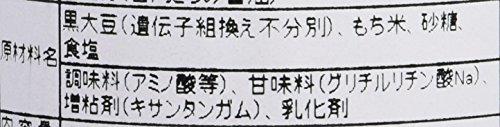 黒大豆(遺伝子組換え不分別)、もち米、砂糖、
食塩
原材料名
調味料(アミノ酸等)、甘味料(グリチルリチン酸Na)、
増粘剤(キサンタンガム)、乳化剤
内容量